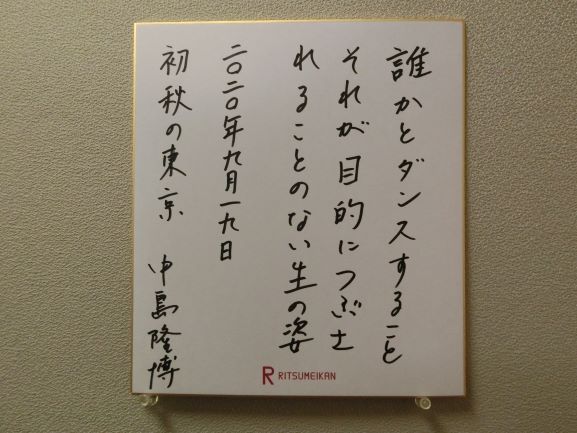 誰かとダンスすること
それが目的につぶさ
れることのない生の姿
二〇二〇年九月一九日
初秋の東京 中島隆博
R RITSUMEIKAN